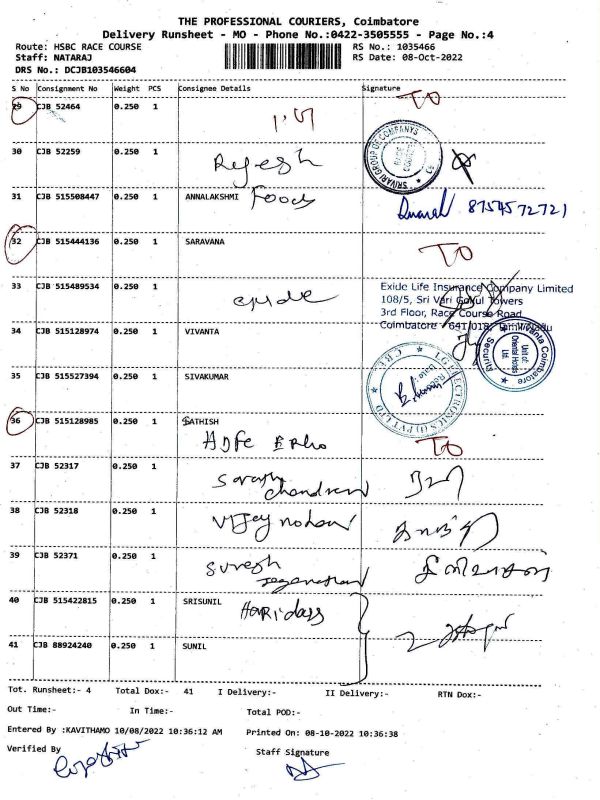 THE PROFESSIONAL COURIERS, Coimbatore
Delivery Runsheet - MO - Phone No.:0422-3505555 - Page No.:4
Route: HSBC RACE COURSE RS No.: 1035466
Staff: NATARAJ RS Date: 08-Oct-2022
DRS No.: DCJB103546604
S No Consignment No Weight PCS Consignee Details Signature
29 CJB 52464 0.250 1 TO
30 CJB 52259 0.250 1 Rejesh
SRIVARI GROUP OF COMPANYS
31 CJB 515508447 0.250 1 ANNALAKSHMI Foods 8754572721
32 CJB 515444136 0.250 1 SARAVANA TO
33 CJB 515489534 0.250 1 exide
Exide Life Insurance Company Limited
108/5, Sri Vari Gokul Towers
3rd Floor, Race Course Road,
Coimbatore - 641 018, Tamilnadu
34 CJB 515128974 0.250 1 VIVANTA
Vivanta Coimbatore
Security
Unit of:
Oriental Hotels
Ltd.
35 CJB 515527394 0.250 1 SIVAKUMAR
LG ELECTRONICS (I) PVT LTD
CBE
36 CJB 515128985 0.250 1 SATHISH TO
37 CJB 52317 0.250 1 Sarath
chandran
38 CJB 52318 0.250 1 Vijay mohan
39 CJB 52371 0.250 1 Suresh
Jeganathan
40 CJB 515422815 0.250 1 SRISUNIL Haridass
41 CJB 88924240 0.250 1 SUNIL
Tot. Runsheet:- 4 Total Dox:- 41 I Delivery:- II Delivery:- RTN Dox:-
Out Time:- In Time:- Total POD:-
Entered By :KAVITHAMO 10/08/2022 10:36:12 AM Printed On: 08-10-2022 10:36:38
Verified By Staff Signature